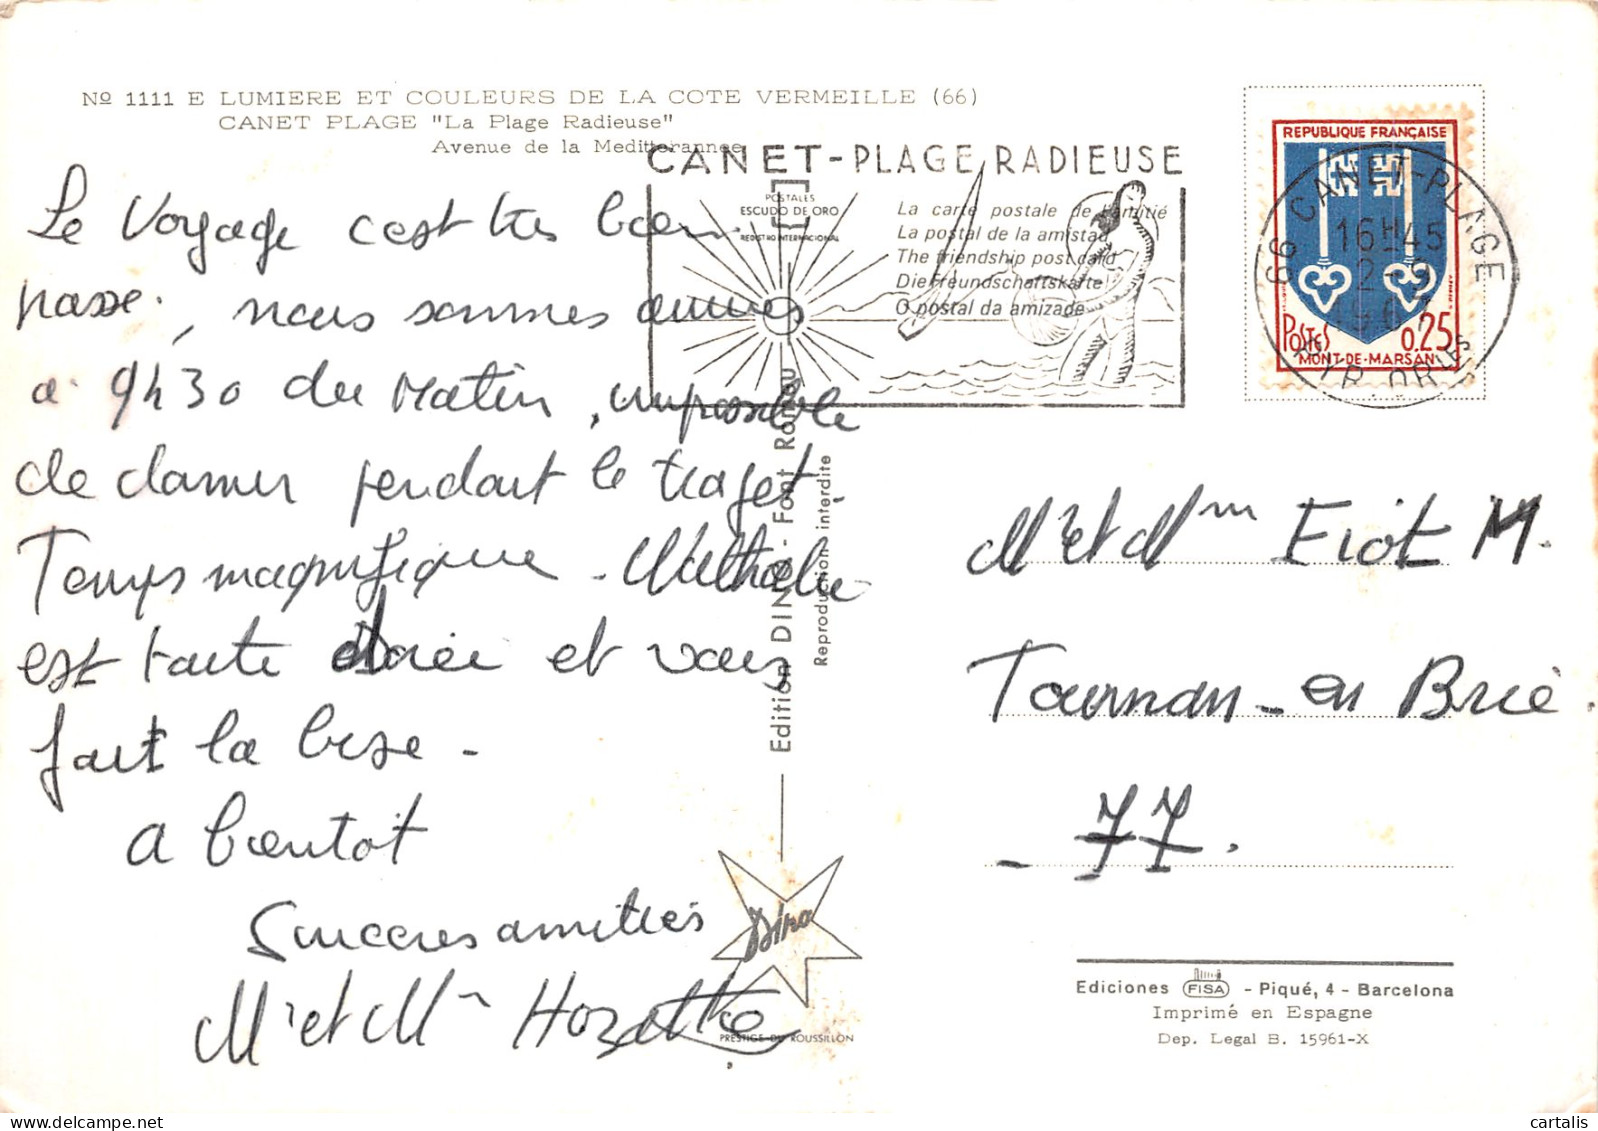 Nº 1111 E LUMIERE ET COULEURS DE LA COTE VERMEILLE (66)
CANET PLAGE "La Plage Radieuse"
Avenue de la Mediterrannee
Le Voyage c'est tres bien
passé, nous sommes arrives
a 9h30 du Matin, impossible
de damer pendant le trajet.
Temps magnifique - Nathalie
est toute dorée et vous
fait la bise -
a bientot
Sinceres amities
Mr et Mm
POSTALES
ESCUDO DE ORO
REGISTRO INTERNACIONAL
La carte postale de l'amitié
La postal de la amistad
The friendship post card
Die Freundschaftskarte
O postal da amizade
CANET-PLAGE RADIEUSE
Edition DINO - Font Romeu
Reproduction interdite
Dino
PRESTIGE DU ROUSSILLON
REPUBLIQUE FRANÇAISE
POSTES 0,25
MONT-DE-MARSAN
66 CANET-PLAGE
16H45
PYR. ORles
Mr et Mm Eiot M.
Tournan-en Brie.
- 77.
Ediciones FISA - Piqué, 4 - Barcelona
Imprimé en Espagne
Dep. Legal B. 15961-X
cartalis